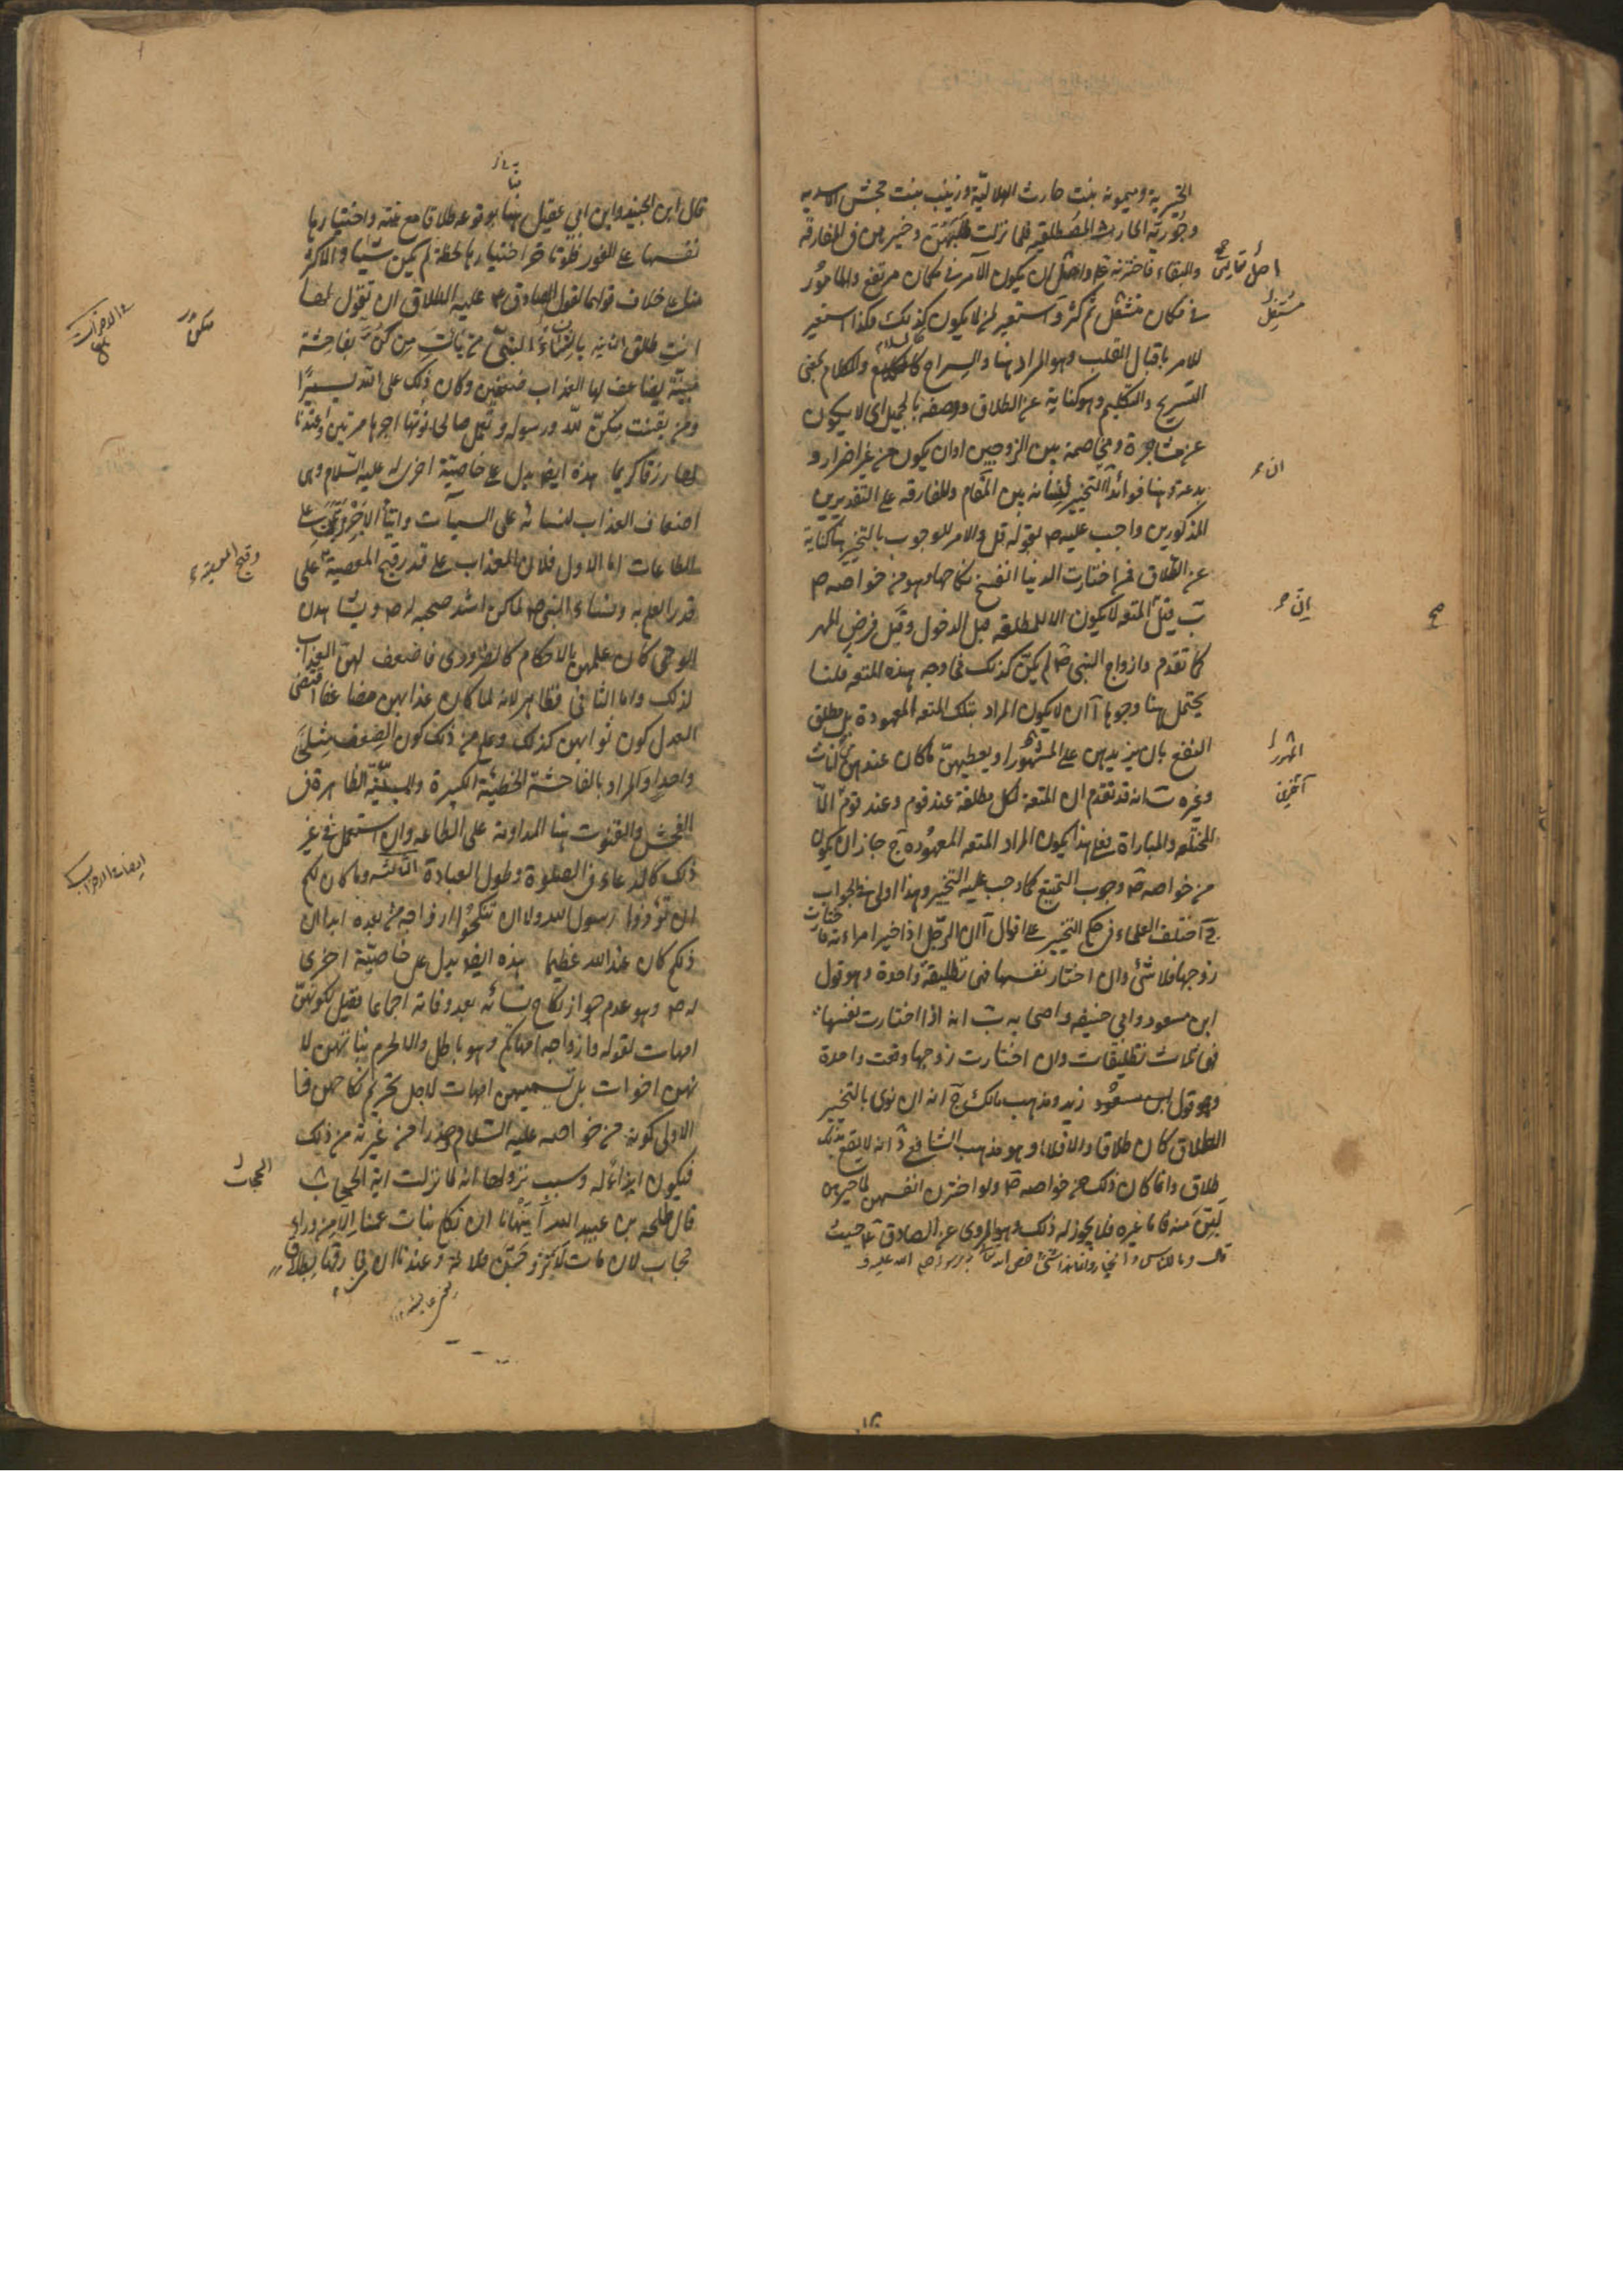 الخيبرية وميمونه بنت حارث الهلاليّة وزينب بنت جحش الاسديه
وجُوَريّه الحارث المصطلقيه فلما نزلت وخيرهن فى المفارقه
والبقاء فاخترنه ص واصل تعال ان يكون الآمر فى مكان مرتفع والمامور
فى مكان مستفل ثم كثر واستعير لمن لا يكون كذلك هكذا استعير
للامر باقبال القلب وهو المراد هنا والسراح كالسلام والكلام بمعنى
التسريح والتكليم وهو كناية عن الطلاق ووصفه بالجميل اى لا يكون
عن مشاجرة ومخاصمة بين الزوجين او ان يكون من غير اضرار و
بدعة وهنا فوائد آ التخيير لنسائه بين المقام والمفارقه على التقديرين
المذكورين واجب عليه ص لقوله قل والامر للوجوب بالتخيير هنا كناية
عن الطّلاق فمن اختارت الدنيا انفسخ نكاحها وهو من خواصّه ص
ب قيل المتعه لا يكون الا للمطلقه قبل الدخول وقبل فرض المهر
كما تقدم وازواج النبى ص لم يكنّ كذلك فما وجه هذه المتعه قلنا
يحتمل هنا وجوها آ ان لا يكون المراد بتلك المتعه المعهودة بل مطلق
النفع بان يزيدهن على المهور او يعطيهنّ ما كان عندهن من اثاث
وغيره ب انه قد تقدم ان المتعة لكل مطلقة عند قوم وعند قوم الّا
المختلعه والمباراة فعلى هذا يكون المراد المتعه المعهُوده ج جاز ان يكون
من خواصه ص وجوب التمتيع كما وجب عليه التخيير وهذا اولى فى الجواب
ج اختلف العلماء فى حكم التخيير على اقوال آ ان الرّجل اذا خير امراءته فاختارت
زوجها فلا شئ وان اختار نفسها فهى تطليقةٌ واحدة وهو قول
ابن مسعود وابى حنيفه واصحابه ب انه اذا اختارت نفسها
فهى ثلاث تطليقات وان اختارت زوجها وقعت واحدة
وهو قول زيد ومذهب مالك ج انه ان نوى بالتخيير
الطلاق كان طلاقا والا فلا وهو مذهب الشافعى د انه لا يقع بذلك
طلاق وانما كان ذلك من خواصه ص ولو اخترن انفسهن لما خيرهن
لَبِنَّ منه فاما غيره فلا يجوز له ذلك وهو المروى عن الصادق ع حيث
قال وما للناس والخيار وانما هذا شئ خص الله به رسوله صلى الله عليه و
اصل تعال
مستفل
ان
انّ
صح
المهور
قال ابن الجنيد وابن ابى عقيل منّا بوقوعه طلاقا مع نيته واختيارها
نفسها على الفور فلو تاخر اختيارها لحظة لم يكن شيئا والاكثر
منا على خلاف قولهما لقول الصادق ع عليه الطلاق ان يقول لها
انتِ طالق الثانيه يا نساء النبىّ من يأتِ مِن كُنّ بفاحشة
مبيّنة يضاعف لها العذاب ضعفين وكان ذلك على الله يسيرًا
ومن يقنت منكنّ لله ورسوله وتعمل صالحا نؤتها اجرها مرتين واعتدنا
لها رزقا كريما هذه ايضا يدل على خاصّيّة اخرى له عليه السّلام وهى
اضعاف العذاب لنسائه على السيئات وايتاء الاجر مرّتين على
الطاعات اما الاول فلان العذاب على قدر قبح المعصية على
قدر العلم به ونساء النبى ص لما كن اشد صحبه له ص ويشاهدن
الوحى كان علمهن بالاحكام كالضرورى فاضعف لهن العذاب
لذلك واما الثانى فظاهر لانه لما كان عذابهن مضاعفا اقتضى
العدل كون ثوابهن كذلك وعلم من ذلك كون الضِعف مثلى
واحد والمراد بالفاحشة الخطيئة الكبيرة والمبيّنة الظاهرة فى
الفحش والقنوت هنا المداومة على الطاعه وان استعمل فى غير
ذلك كالدعاء فى الصلوة وطول العبادة الثالثه وما كان لكم
ان تؤذوا رسول الله ولا ان تنكحُوا ازواجه من بعده ابدا ان
ذلكم كان عند الله عظيما هذه ايضا يدل على خاصيّة اخرى
له ص وهو عدم جواز نكاح نسائه بعد وفاته اجماعا فقيل لكونهنّ
امهات لقوله وازواجه امهاتكم وهو باطل والا لحرم بناتهن لا
نهن اخوات بل تسميتهن امهات لاجل تحريم نكاحهن فا
الاولى كونه من خواصه عليه السّلام حذرا من غيرته من ذلك
فيكون ايذاءً له وسبب نزولها انه لما نزلت اية الحجاب
قال طلحه بن عبيد الله أيَنْهانا ان نكاح بنات عمنا الّا من وراء
حجاب لان مات لَاَتَزوّجَنَّ فلانة وعندنا ان من فارقها بطلاق
مِنكُنّ
وقبح المعصية
ايضا الاحزاب
الحجاب